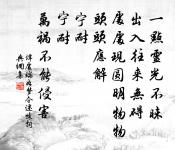 一點靈光不昧
出入往來無礙
處處現圓明物物
頭頭應解
宁耐
宁耐
萬禍不能侵害
譚處端如夢令
典網集